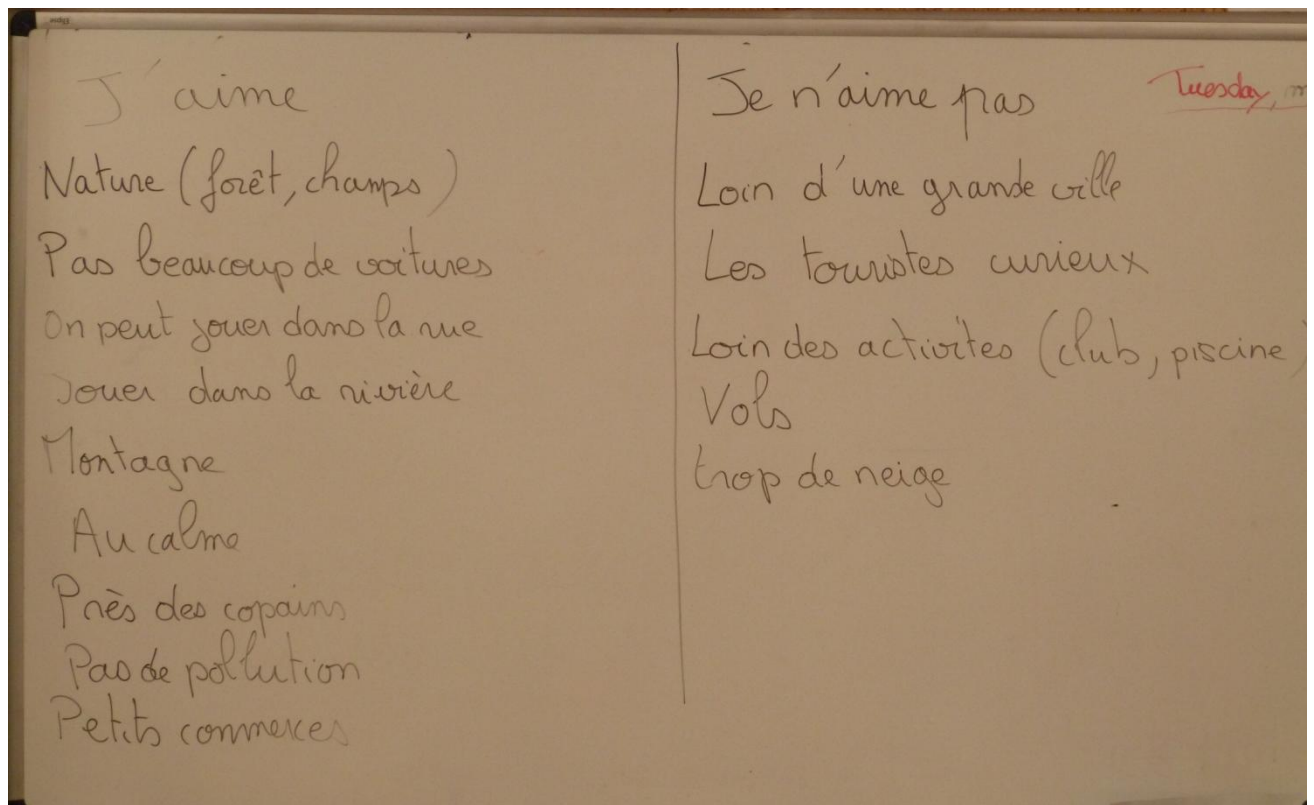 J'aime
Nature (forêt, champs)
Pas beaucoup de voitures
On peut jouer dans la rue
Jouer dans la rivière
Montagne
Au calme
Près des copains
Pas de pollution
Petits commerces
Je n'aime pas
Loin d'une grande ville
Les touristes curieux
Loin des activites (club, piscine)
Vols
trop de neige
Tuesday,